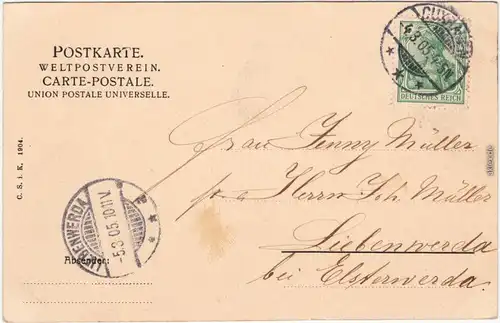 POSTKARTE.
WELTPOSTVEREIN.
CARTE-POSTALE.
UNION POSTALE UNIVERSELLE.
CUXHAVEN
4.3.05
DEUTSCHES REICH
C. S. i. K. 1904.
Frau Jenny Müller
p a Herrn Joh. Müller
Liebenwerda
bei Elsterwerda
LIEBENWERDA
5.3.05.10-11V.
Absender: